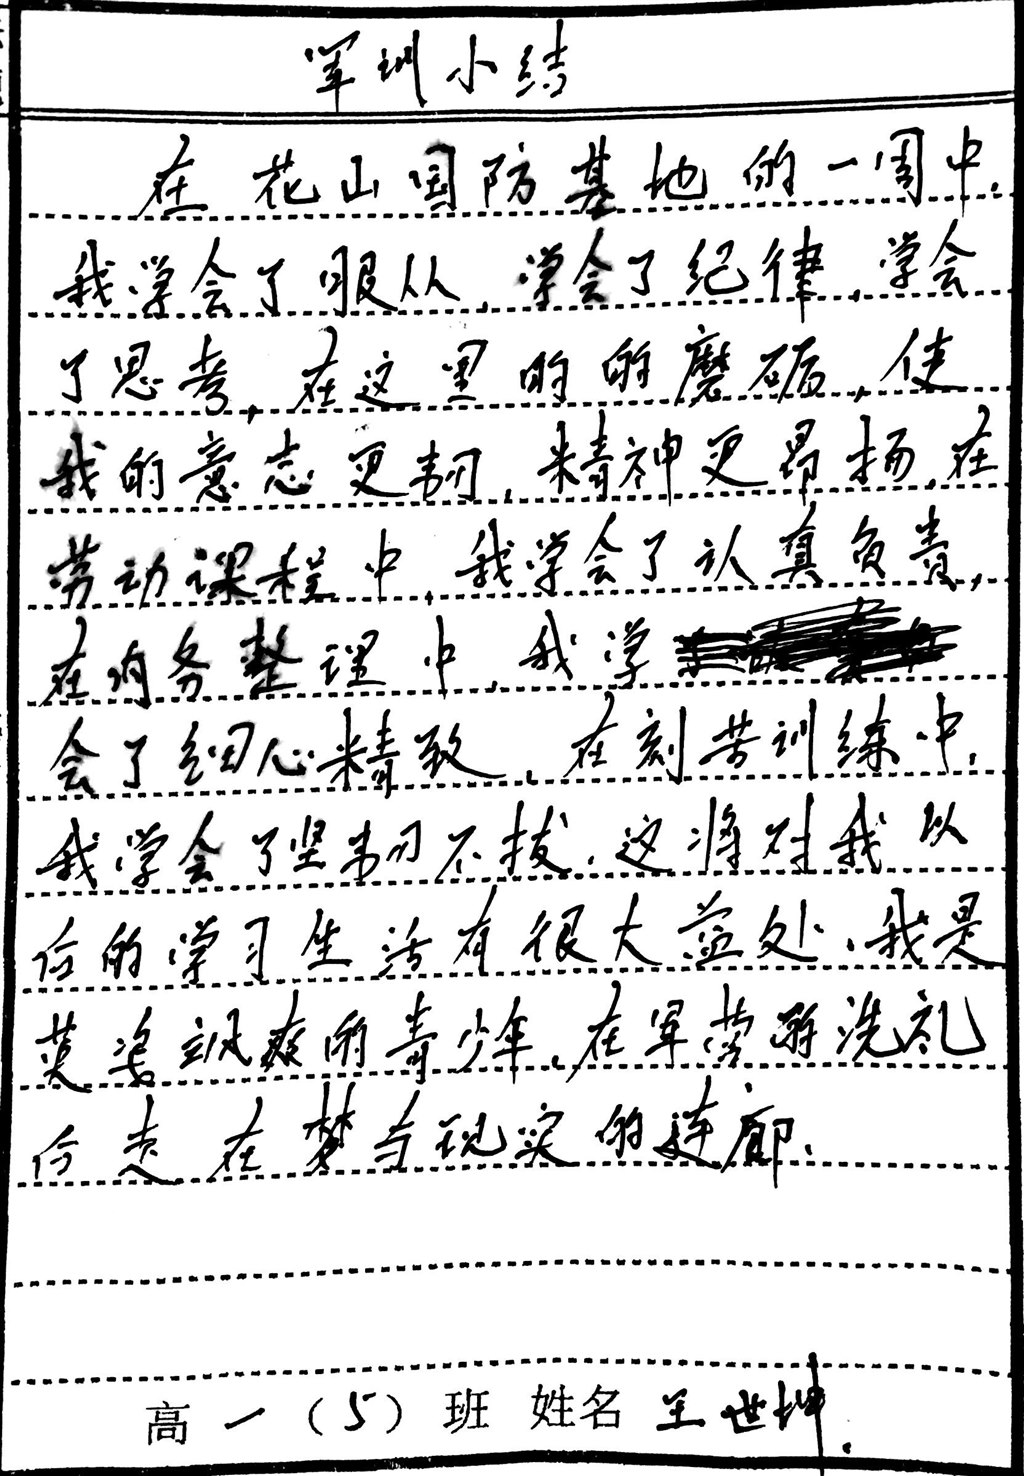 军训小结
在花山国防基地的一周中,
我学会了服从,学会了纪律,学会
了思考,在这里的的磨砺,使
我的意志更韧,精神更昂扬,在
劳动课程中,我学会了认真负责,
在内务整理中,我学
会了细心精致,在刻苦训练中,
我学会了坚韧不拔.这将对我以
后的学习生活有很大益处.我是
英姿飒爽的青少年,在军营的洗礼
后走在梦与现实的连廊.
高一(5)班 姓名 王世坤.